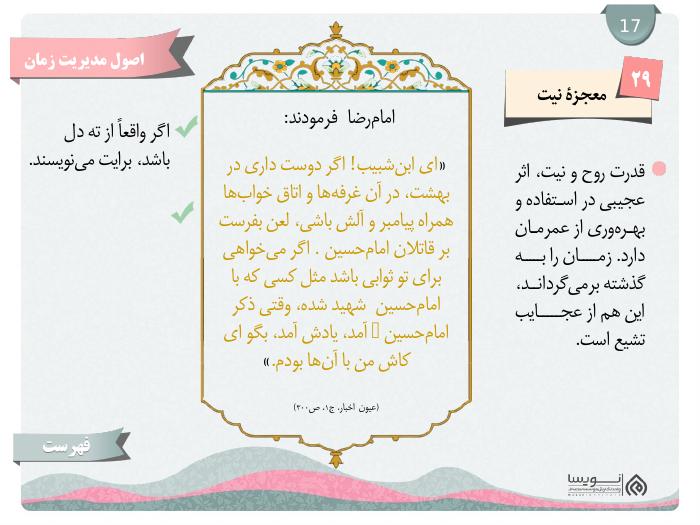 17
اصول مدیریت زمان
۲۹
معجزۀ نیت
قدرت روح و نیت، اثر
عجیبی در استفاده و
بهره‌وری از عمرمان
دارد. زمان را به
گذشته برمی‌گرداند،
این هم از عجایب
تشیع است.
امام‌رضا فرمودند:
«ای ابن‌شبیب! اگر دوست داری در
بهشت، در آن غرفه‌ها و اتاق خواب‌ها
همراه پیامبر و آلش باشی، لعن بفرست
بر قاتلان امام‌حسین . اگر می‌خواهی
برای تو ثوابی باشد مثل کسی که با
امام‌حسین شهید شده، وقتی ذکر
امام‌حسین آمد، یادش آمد، بگو ای
کاش من با آن‌ها بودم.»
(عیون اخبار، ج۱، ص۳۰۰)
اگر واقعاً از ته دل
باشد، برایت می‌نویسند.
فهرست
انویسا